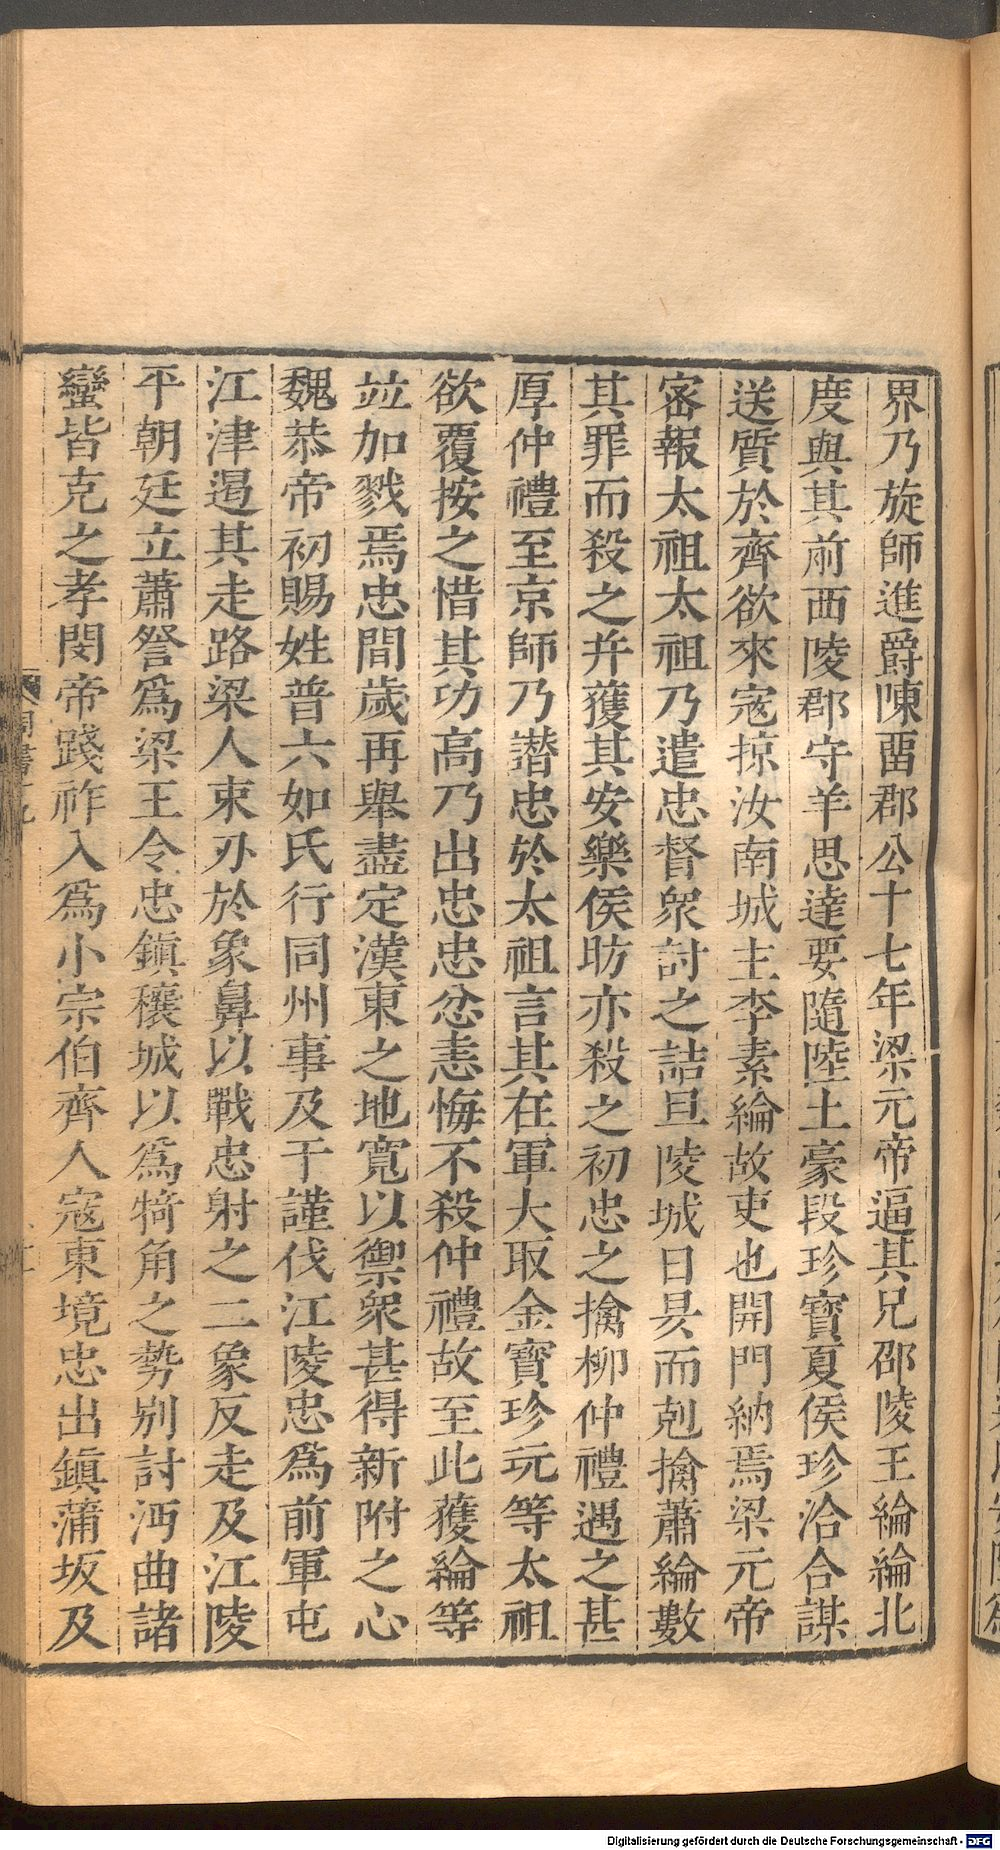 界乃旋師進爵陳畱郡公十七年梁元帝逼其兄邵陵王綸綸北
度與其前西陵郡守羊思達要隨陸土豪段珍寶夏侯珍洽合謀
送質於齊欲來寇掠汝南城主李素綸故吏也開門納焉梁元帝
密報太祖太祖乃遣忠督衆討之詰旦陵城日昃而剋擒蕭綸數
其罪而殺之并獲其安樂侯昉亦殺之初忠之擒柳仲禮遇之甚
厚仲禮至京師乃譖忠於太祖言其在軍大取金寶珍玩等太祖
欲覆按之惜其功高乃出忠忠忿恚悔不殺仲禮故至此獲綸等
竝加戮焉忠間歲再舉盡定漢東之地寬以禦衆甚得新附之心
魏恭帝初賜姓普六如氏行同州事及于謹伐江陵忠爲前軍屯
江津遏其走路梁人束刃於象鼻以戰忠射之二象反走及江陵
平朝廷立蕭詧爲梁王令忠鎮穰城以爲犄角之勢别討沔曲諸
蠻皆克之孝閔帝踐祚入爲小宗伯齊人寇東境忠出鎮蒲坂及
Digitalisierung gefördert durch die Deutsche Forschungsgemeinschaft - DFG